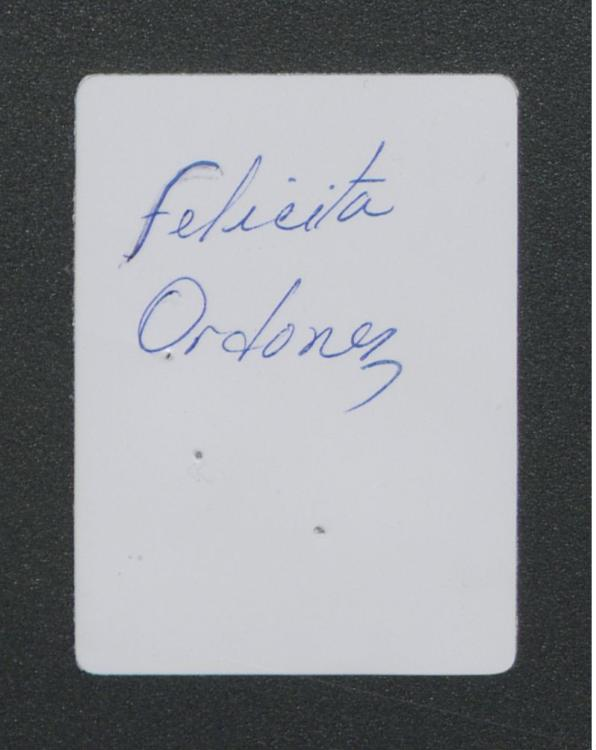 Felicita
Ordonez